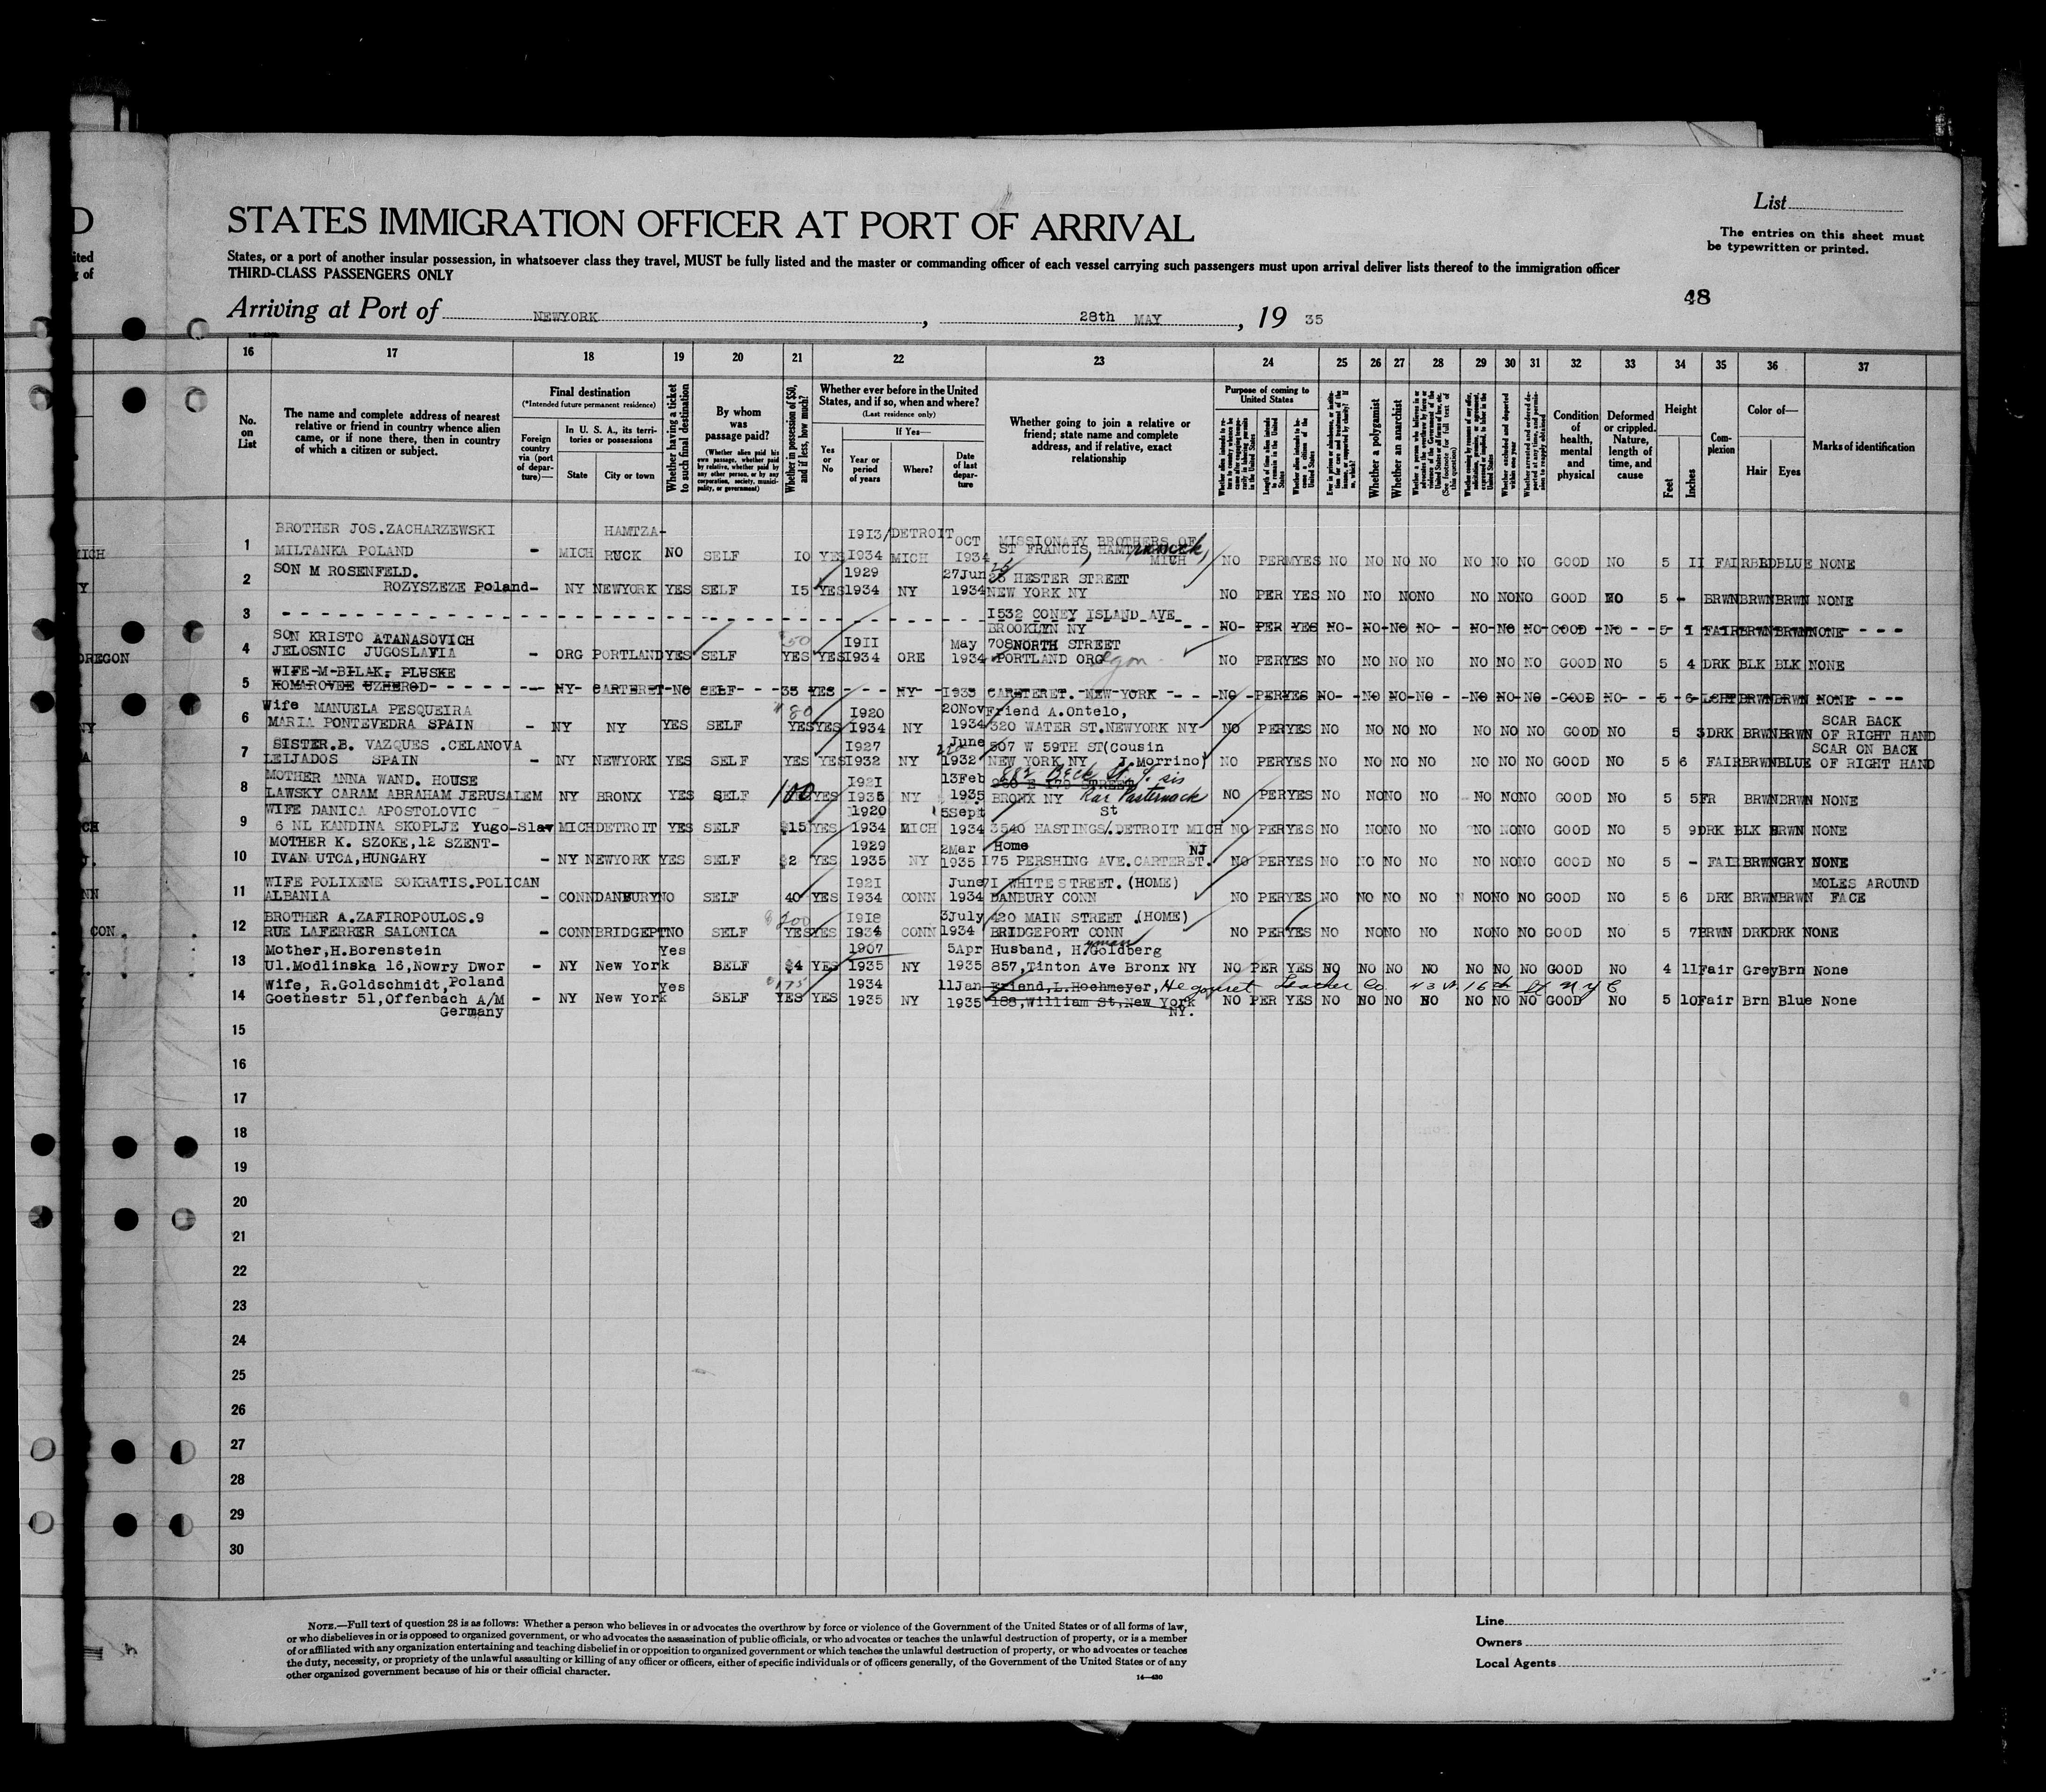 D
ited
g of
List
STATES IMMIGRATION OFFICER AT PORT OF ARRIVAL
The entries on this sheet must
be typewritten or printed.
States, or a port of another insular possession, in whatsoever class they travel, MUST be fully listed and the master or commanding officer of each vessel carrying such passengers must upon arrival deliver lists thereof to the immigration officer
THIRD-CLASS PASSENGERS ONLY
48
Arriving at Port of NEWYORK, 28th MAY, 19 35
16 17 18 19 20 21 22 23 24 25 26 27 28 29 30 31 32 33 34 35 36 37
No. on List
The name and complete address of nearest relative or friend in country whence alien came, or if none there, then in country of which a citizen or subject.
Final destination
(*Intended future permanent residence)
Foreign country via (port of departure)—
In U. S. A., its territories or possessions
State
City or town
Whether having a ticket to such final destination
By whom was passage paid?
(Whether alien paid his own passage, whether paid by relative, whether paid by any other person, or by any corporation, society, municipality, or government)
Whether in possession of $50, and if less, how much?
Whether ever before in the United States, and if so, when and where?
(Last residence only)
Yes or No
If Yes—
Year or period of years
Where?
Date of last departure
Whether going to join a relative or friend; state name and complete address, and if relative, exact relationship
Purpose of coming to United States
Whether a polygamist
Whether an anarchist
Condition of health, mental and physical
Deformed or crippled. Nature, length of time, and cause
Height
Feet
Inches
Complexion
Color of—
Hair
Eyes
Marks of identification
MICH
1 BROTHER JOS.ZACHARZEWSKI HAMTZA- I9I3/ DETROIT OCT MISSIONARY BROTHERS OF
MILTANKA POLAND - MICH RUCK NO SELF IO YES I934 MICH I934 ST FRANCIS, HAMT MICH NO PER YES NO NO NO NO NO NO NO GOOD NO 5 II FAIR BRD BLUE NONE
2 SON M ROSENFELD. 1929 27Jun 25 HESTER STREET
ROZYSZEZE Poland- NY NEWYORK YES SELF I5 YES 1934 NY 1934 NEW YORK NY NO PER YES NO NO NO NO NO NO NO GOOD NO 5 - BRWN BRWN BRWN NONE
3 I532 CONEY ISLAND AVE
BROOKLYN NY NO PER YES NO NO NO NO NO NO NO GOOD NO 5 1 FAIR BRWN BRWN NONE
OREGON
4 SON KRISTO ATANASOVICH 50 I9II May 708 NORTH STREET
JELOSNIC JUGOSLAVIA - ORG PORTLAND YES SELF YES YES I934 ORE 1934 PORTLAND ORG egon NO PER YES NO NO NO NO NO NO NO GOOD NO 5 4 DRK BLK BLK NONE
5 WIFE M BILAK. PLUSKE
KOMAROVEE UZHEROD NY CARTERET NO SELF 35 YES NY I933 CARTERET. NEW YORK NO PER YES NO NO NO NO NO NO NO GOOD NO 5 6 LGHT BRWN BRWN NONE
NY
6 Wife MANUELA PESQUEIRA 80 I920 20Nov Friend A.Ontelo, SCAR BACK
MARIA PONTEVEDRA SPAIN - NY NY YES SELF YES YES I934 NY 1934 320 WATER ST.NEWYORK NY NO PER YES NO NO NO NO NO NO NO GOOD NO 5 3 DRK BRWN BRWN OF RIGHT HAND
7 SISTER.B. VAZQUES .CELANOVA I927 June 507 W 59TH ST(Cousin SCAR ON BACK
LEIJADOS SPAIN - NY NEWYORK YES SELF YES YES I932 NY 1932 NEW YORK NY J.Morrino) NO PER YES NO NO NO NO NO NO NO GOOD NO 5 6 FAIR BRWN BLUE OF RIGHT HAND
8 MOTHER ANNA WAND. HOUSE I92I 13Feb 882 Beck St. sis
LAWSKY CARAM ABRAHAM JERUSALEM NY BRONX YES SELF 100 YES I935 NY 1935 BRONX NY Pasternack NO PER YES NO NO NO NO NO NO NO GOOD NO 5 5 FR BRWN BRWN NONE
9 WIFE DANICA APOSTOLOVIC 1920 5Sept St
6 NL KANDINA SKOPLJE Yugo-Slav MICH DETROIT YES SELF $15 YES 1934 MICH 1934 3540 HASTINGS/.DETROIT MICH NO PER YES NO NO NO NO NO NO NO GOOD NO 5 9 DRK BLK BRWN NONE
10 MOTHER K. SZOKE,12 SZENT- 1929 2Mar Home NJ
IVAN UTCA,HUNGARY - NY NEWYORK YES SELF $2 YES 1935 NY 1935 I75 PERSHING AVE.CARTERET. NO PER YES NO NO NO NO NO NO NO GOOD NO 5 - FAIR BRWN GRY NONE
11 WIFE POLIXENE SOKRATIS.POLICAN I92I June 7I WHITE STREET. (HOME) MOLES AROUND
ALBANIA - CONN DANBURY NO SELF 40 YES I934 CONN 1934 DANBURY CONN NO PER YES NO NO NO NO NO NO NO GOOD NO 5 6 DRK BRWN BRWN FACE
CON.
12 BROTHER A.ZAFIROPOULOS.9 $200 I9I8 3July 420 MAIN STREET .(HOME)
RUE LAFERRER SALONICA - CONN BRIDGEPT NO SELF YES YES I934 CONN 1934 BRIDGEPORT CONN NO PER YES NO NO NO NO NO NO NO GOOD NO 5 7 BRWN DRK DRK NONE
13 Mother,H.Borenstein Yes 1907 5Apr Husband, Hyman Goldberg
Ul.Modlinska 16,Nowry Dwor - NY New York SELF $4 YES 1935 NY 1935 857,Tinton Ave Bronx NY NO PER YES NO NO NO NO NO NO NO GOOD NO 4 11 Fair Grey Brn None
Poland
14 Wife, R.Goldschmidt, Yes $175 1934 11Jan Friend,L.Hochmeyer, Leather Co 43 W 16th St NYC
Goethestr 51,Offenbach A/M - NY New York SELF YES YES 1935 NY 1935 188,William St,New York NO PER YES NO NO NO NO NO NO NO GOOD NO 5 10 Fair Brn Blue None
Germany NY.
15
16
17
18
19
20
21
22
23
24
25
26
27
28
29
30
NOTE.—Full text of question 28 is as follows: Whether a person who believes in or advocates the overthrow by force or violence of the Government of the United States or of all forms of law,
or who disbelieves in or is opposed to organized government, or who advocates the assassination of public officials, or who advocates or teaches the unlawful destruction of property, or is a member
of or affiliated with any organization entertaining and teaching disbelief in or opposition to organized government or which teaches the unlawful destruction of property, or who advocates or teaches
the duty, necessity, or propriety of the unlawful assaulting or killing of any officer or officers, either of specific individuals or of officers generally, of the Government of the United States or of any
other organized government because of his or their official character.
14—430
Line
Owners
Local Agents